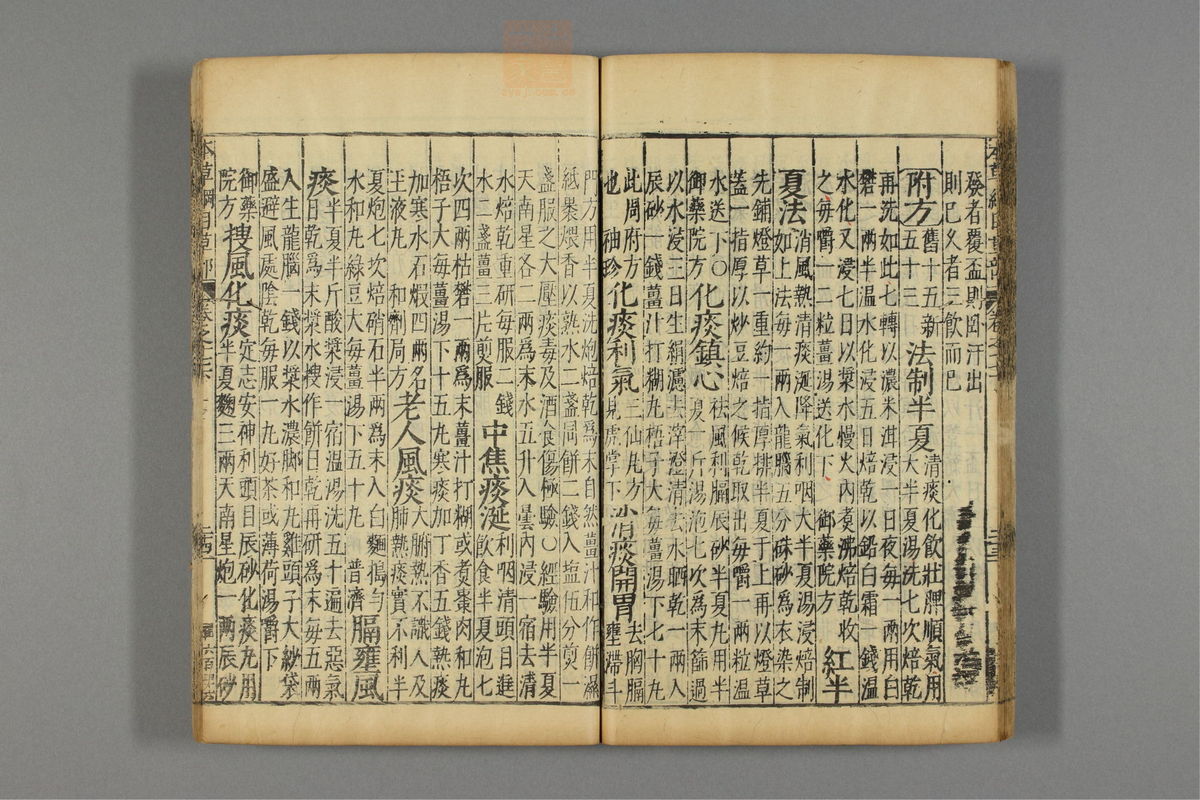 發者覆盃則臥汗出
則已久者三飲而已
附方舊十五新五十三法制半夏清痰化飲壯脾順氣用大半夏湯洗七次焙乾
再洗如此七轉以濃米泔浸一日夜每一兩用白
礬一兩半溫水化浸五日焙乾以鉛白霜一錢溫
水化又浸七日以漿水慢火內煑沸焙乾收
之每嚼一二粒薑湯送化下之御藥院方紅半
夏法消風熱清痰涎降氣利咽大半夏湯浸焙制如上法每一兩入龍腦五分硃砂爲衣染之
先鋪燈草一重約一指厚排半夏于上再以燈草
蓋一指厚以炒豆焙之候乾取出每嚼一兩粒溫
水送下〇御藥院方化痰鎮心祛風利膈辰砂半夏丸用半夏一斤湯泡七次爲末篩過
以水浸三日生絹濾去滓澄清去水晒乾一兩入
辰砂一錢薑汁打糊丸梧子大每薑湯下七十丸
此周府方也袖珍化痰利氣三仙丸方見虎掌下消痰開胃去胸膈壅滯斗
門方用半夏洗炮焙乾爲末自然薑汁和作餅濕
紙裹煨香以熟水二盞同餅二錢入塩伍分煎一
盞服之大壓痰毒及酒食傷極驗〇經驗用半夏
天南星各二兩爲末水五升入壜內浸一宿去清
水焙乾重研每服二錢水二盞薑三片煎服中焦痰涎利咽清頭目進飲食半夏泡七
次四兩枯礬一兩爲末薑汁打糊或煑棗肉和丸
梧子大每薑湯下十五丸寒痰加丁香五錢熱痰
加寒水石煆四兩名玉液丸和劑局方老人風痰大腑熱不識人及肺熱痰實不利半
夏炮七次焙硝石半兩爲末入白麵搗勻
水和丸綠豆大每薑湯下五十丸普濟膈壅風
痰半夏半斤酸漿浸一宿溫湯洗五十遍去惡氣日乾爲末漿水搜作餅日乾再研爲末每五兩
入生龍腦一錢以漿水濃脚和丸雞頭子大紗袋
盛避風處陰乾每服一丸好茶或薄荷湯嚼下
御藥院方搜風化痰定志安神利頭目辰砂化痰丸用半夏麯三兩天南星炮一兩辰砂